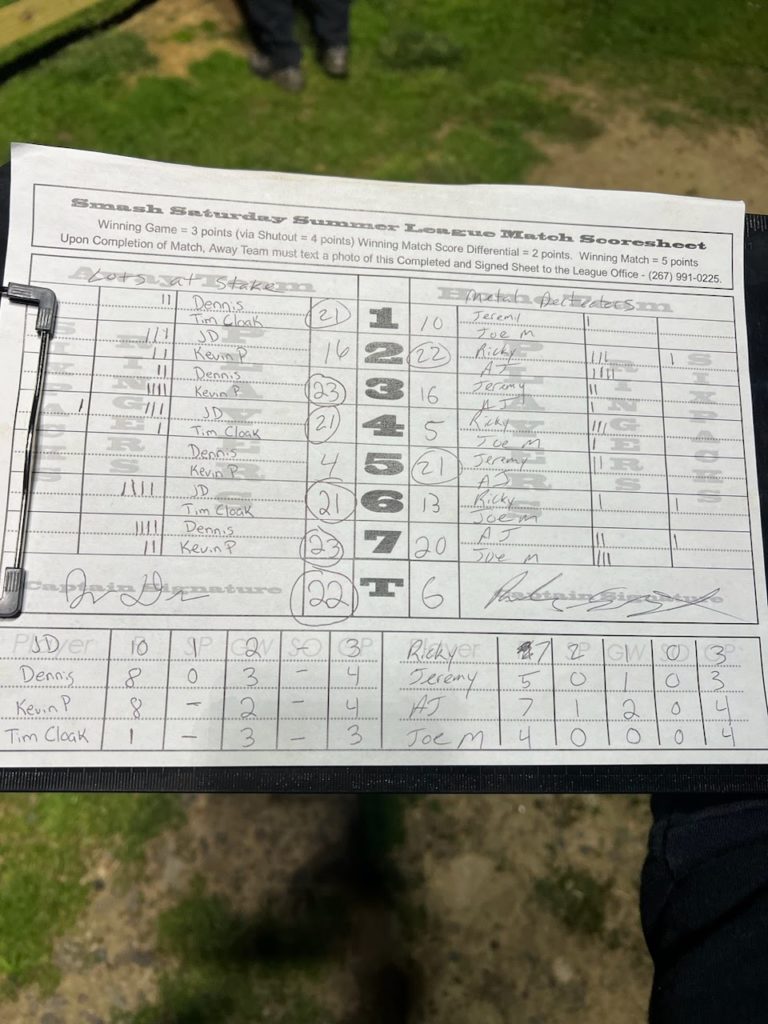 Smash Saturday Summer League Match Scoresheet
Winning Game = 3 points (via Shutout = 4 points) Winning Match Score Differential = 2 points. Winning Match = 5 points
Upon Completion of Match, Away Team must text a photo of this Completed and Signed Sheet to the League Office - (267) 991-0225.
Lots at Stake
Dennis 21 1 10 Jeremy
Tim Cloak Joe M
JD 16 2 22 Ricky
Kevin P AJ
Dennis 23 3 16 Jeremy
Kevin P AJ
JD 21 4 5 Ricky
Tim Cloak Joe M
Dennis 4 5 21 Jeremy
Kevin P AJ
JD 21 6 13 Ricky
Tim Cloak Joe M
Dennis 23 7 20 AJ
Kevin P Joe M
Captain Signature 22 T 6 Captain Signature
Player SP GW SO GP Player SP GW SO GP
JD 10 1 2 - 3 Ricky 7 2 1 0 3
Dennis 8 0 3 - 4 Jeremy 5 0 1 0 3
Kevin P 8 - 2 - 4 AJ 7 1 2 0 4
Tim Cloak 1 - 3 - 3 Joe M 4 0 0 0 4